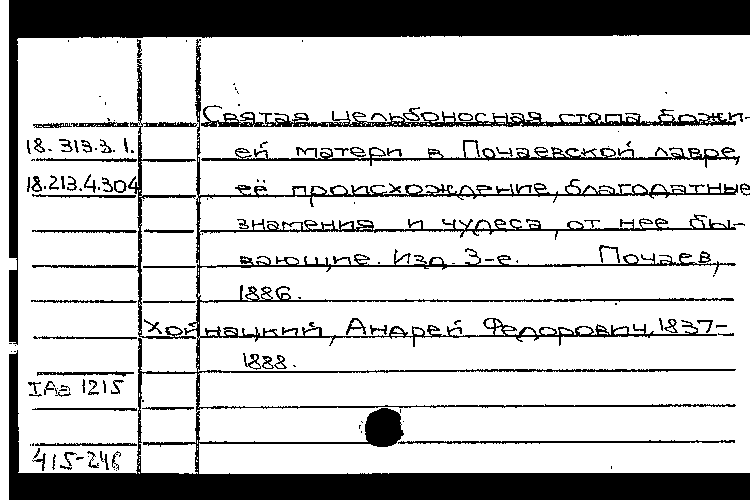 Святая цельбоносная стопа божи-
18.313.3.1. ей матери в Почаевской лавре,
18.213.4.304 её происхождение, благодатные
знамения и чудеса, от нее бы-
вающие. Изд. 3-е. Почаев,
1886.
Хойнацкий, Андрей Федорович, 1837-
1888.
IAa 1215
415-246